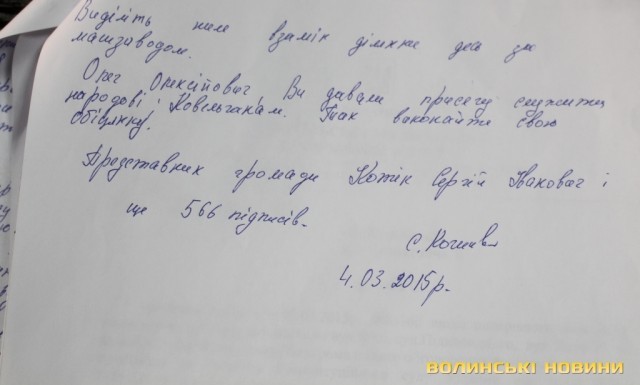 Виділіть нам взамін ділянки десь за
машзаводом.
Олег Олексійович Ви давали присягу служити
народові і Ковельчанам. Так виконайте свою
обіцянку.
Представник громади Кошік Сергій Іванович і
ще 566 підписів.
4.03.2015р.
ВОЛИНСЬКІ НОВИНИ